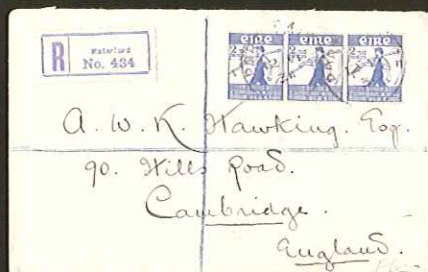 R
Waterford
No. 434
éire éire éire
2 pg 2 pg 2
A. W. K. Hawking. Esq.
90. Hills Road.
Cambridge.
England.